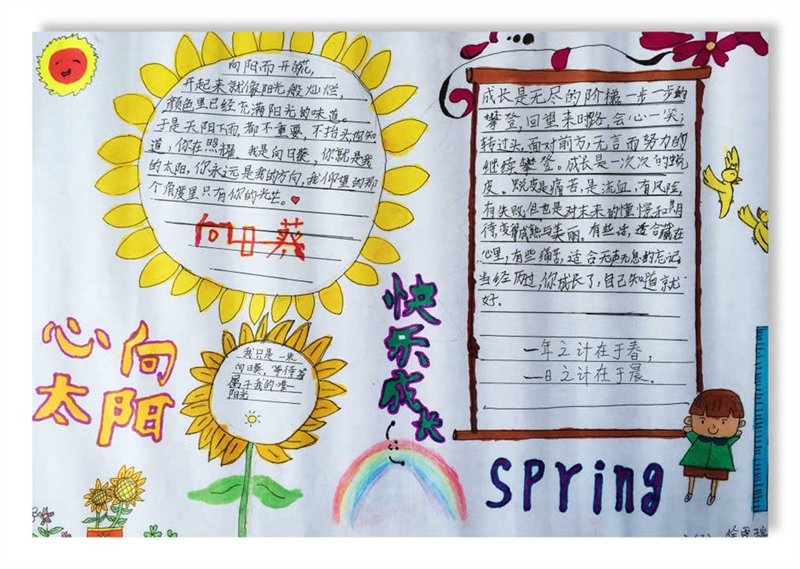 向阳而开花,
开起来就像阳光般灿烂,
颜色里已经充满阳光的味道。
于是天阴下雨都不重要,不抬头便知
道,你在照耀,我是向日葵,你就是我
的太阳,你永远是我的方向,我仰望的那
个角度里只有你的光芒。
向日葵
心向
太阳
我只是一朵
向日葵,等待着
属于我的唯一
阳光
快乐成长
成长是无尽的阶梯,一步一步的
攀登,回望来时路,会心一笑;
转过头,面对前方,无言而努力的
继续攀登。成长是一次次的蜕
皮。蜕皮是痛苦,是流血,有风险,
有失败,但也是对未来的憧憬和期
待,变得成熟与美丽。有些话,适合藏在
心里,有些痛苦,适合无声无息的忘记
当经历过,你成长了,自己知道就
好。
一年之计在于春,
一日之计在于晨.
spring